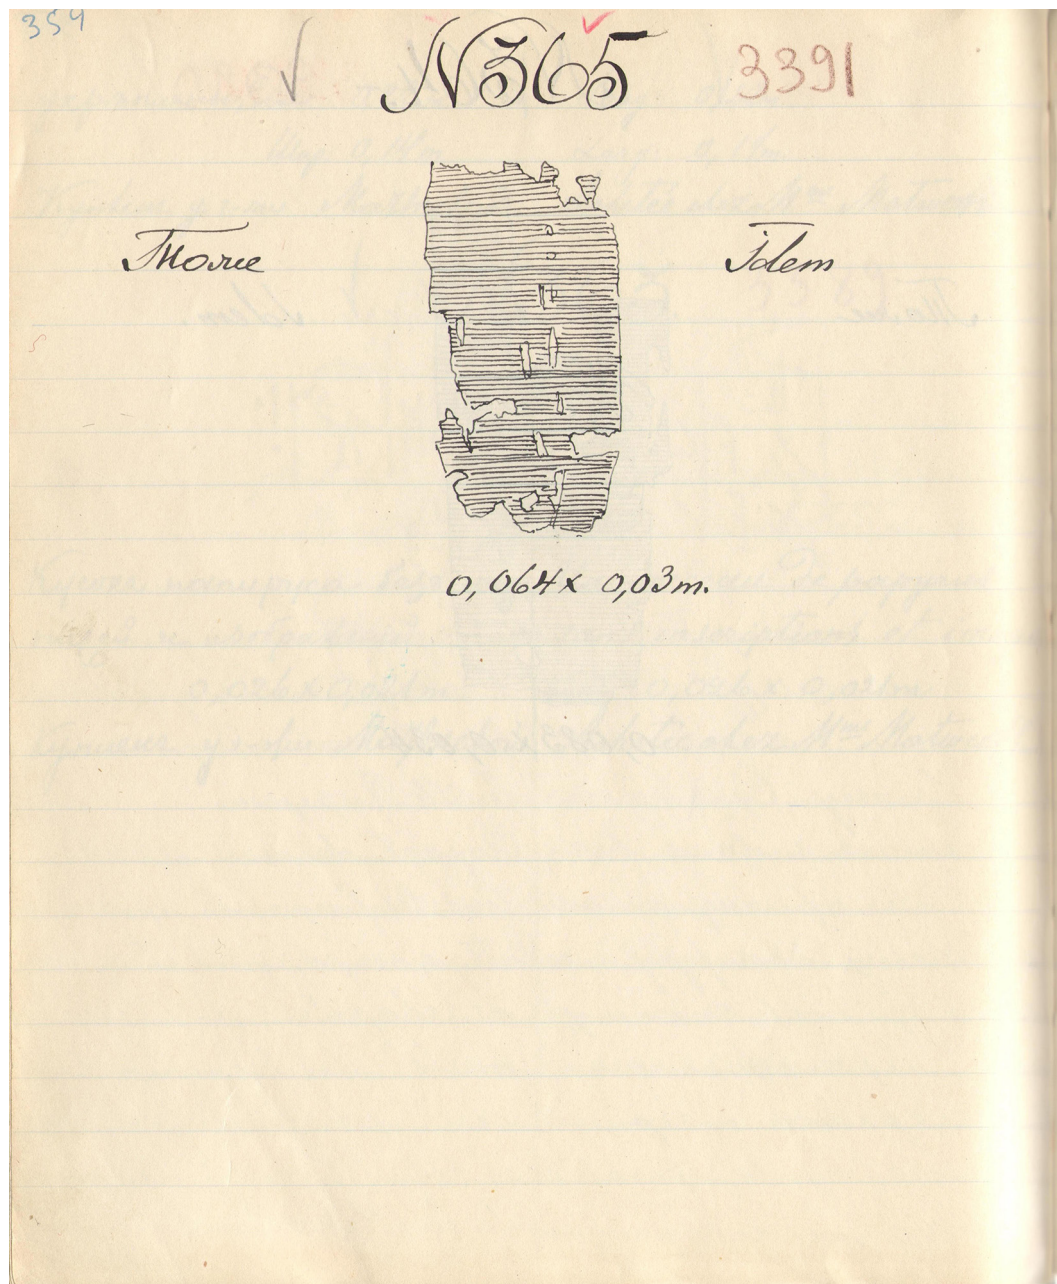 354
N365
3391
Тоже
Idem
0,064 x 0,03 m.